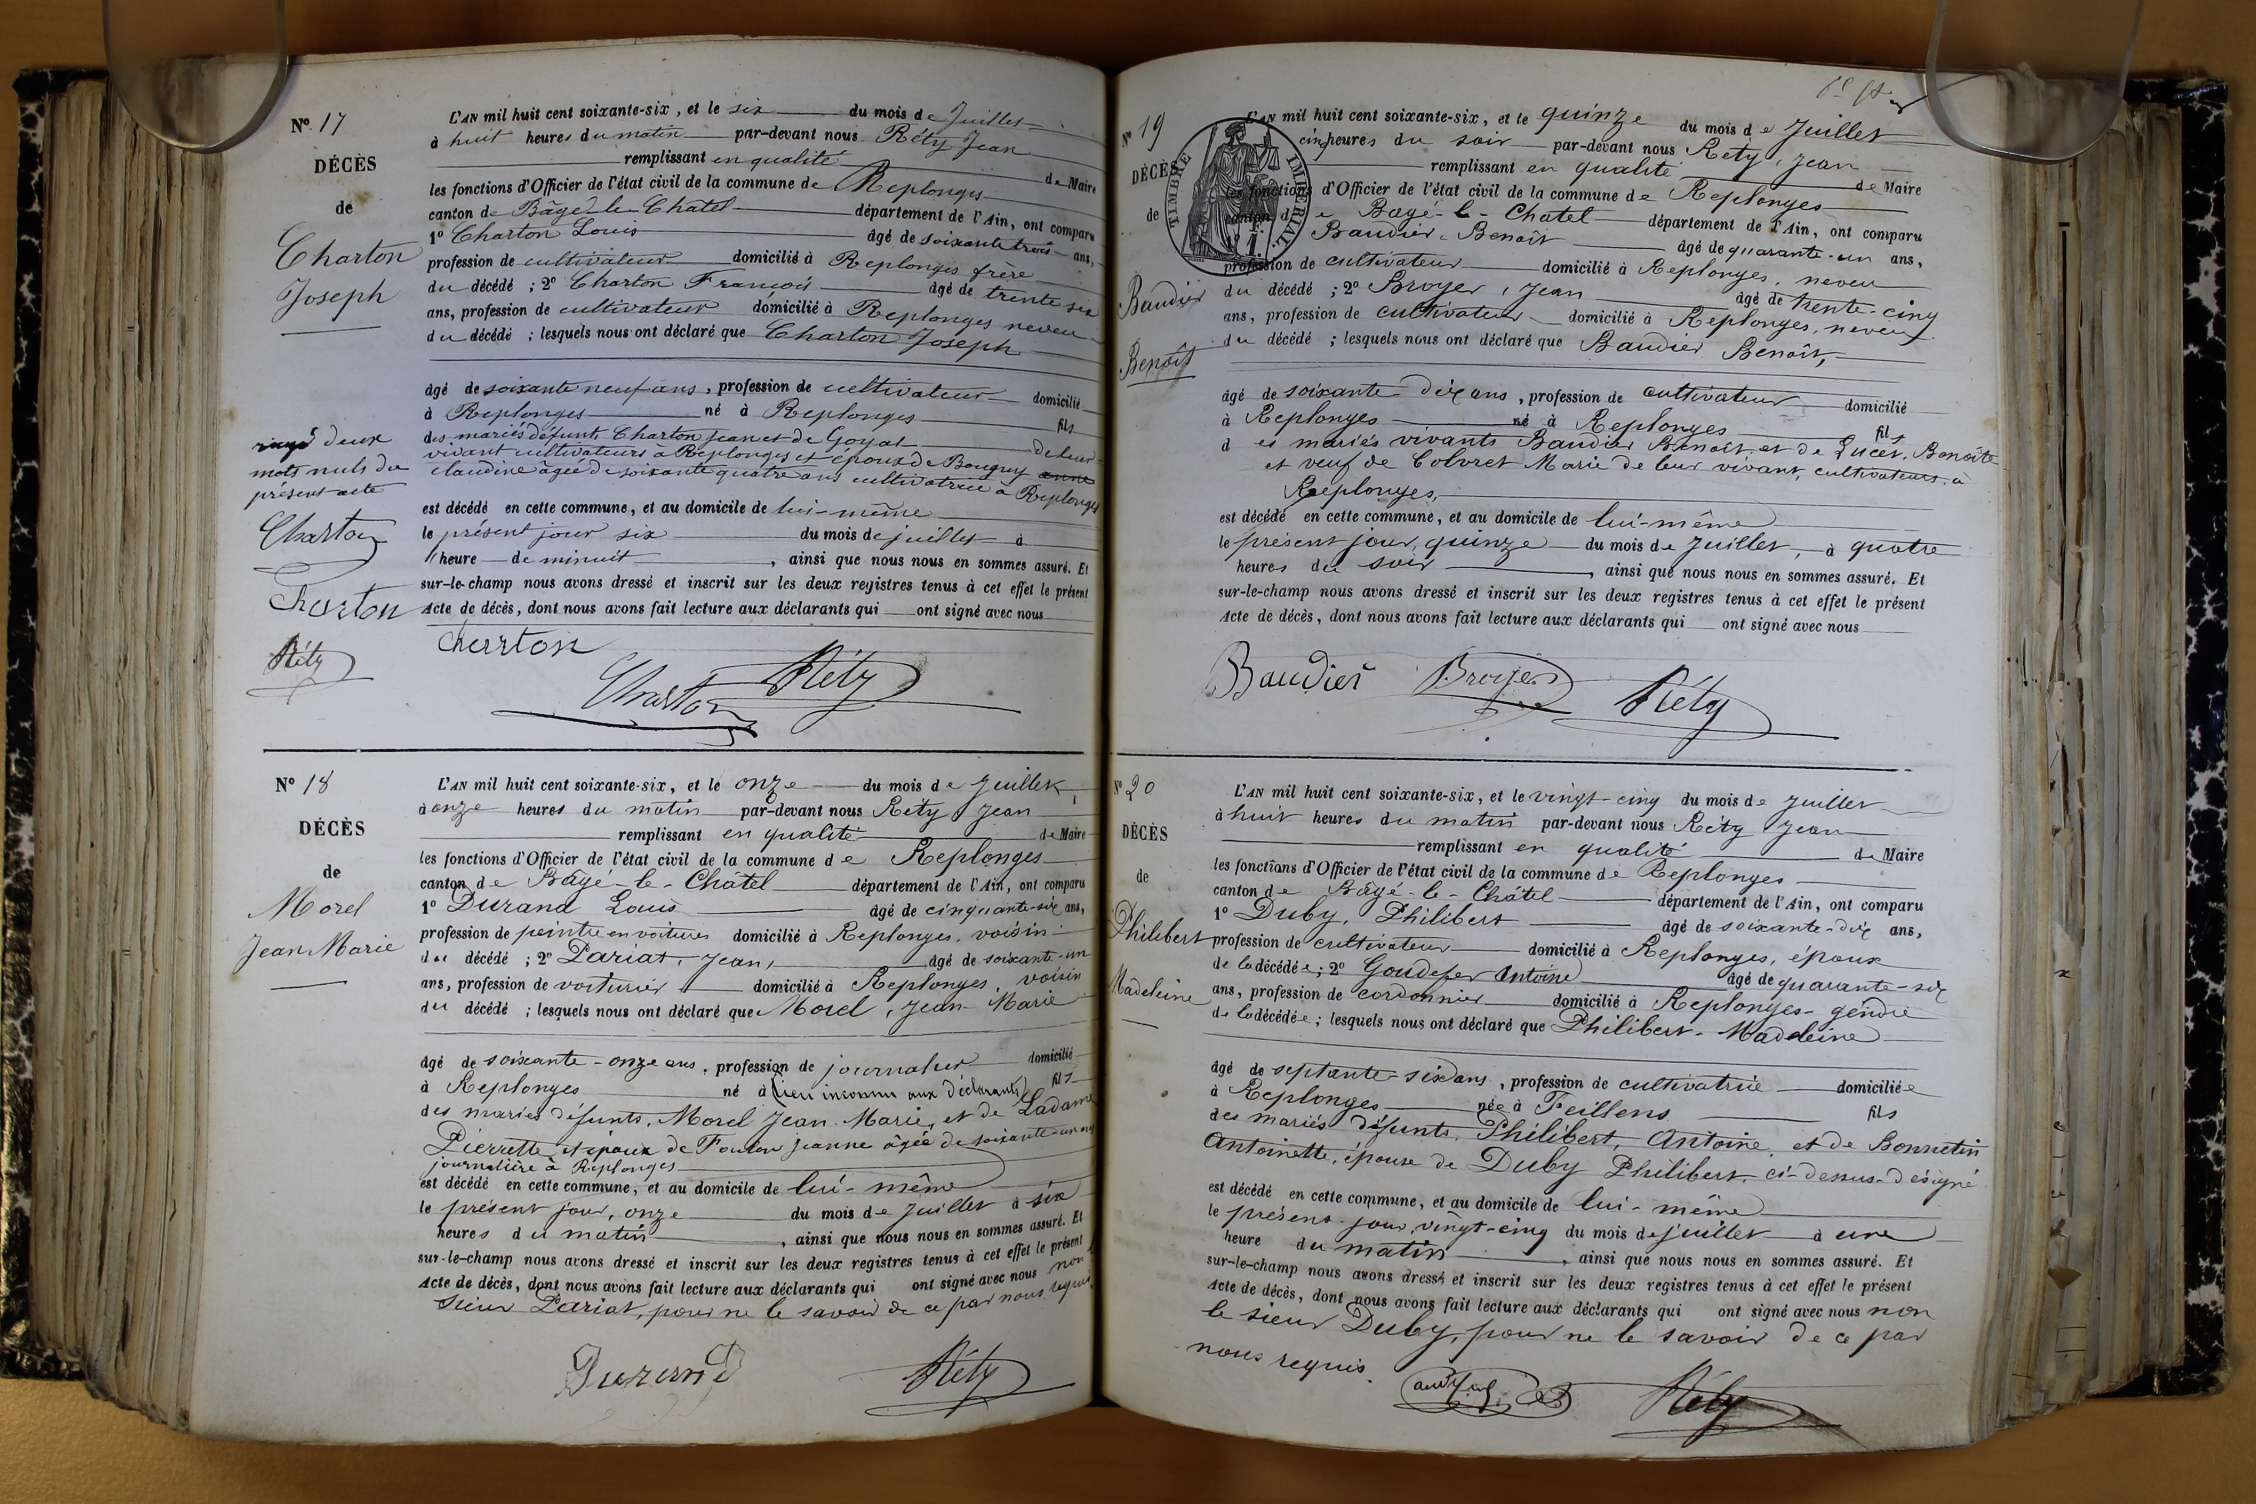 Nº 17
DÉCÈS
de
Charton
Joseph
rayé deux
mots nuls du
présent acte
Charton
Charton
Réty
L'AN mil huit cent soixante-six, et le six du mois de Juillet
à huit heures du matin par-devant nous Réty Jean
remplissant en qualité de Maire
les fonctions d'Officier de l'état civil de la commune de Replonges
canton de Bâgé-le-Châtel département de l'Ain, ont comparu
1º Charton Louis âgé de soixante trois ans,
profession de cultivateur domicilié à Replonges frère
du décédé ; 2º Charton François âgé de trente six
ans, profession de cultivateur domicilié à Replonges neveu
du décédé ; lesquels nous ont déclaré que Charton Joseph
âgé de soixante neuf ans, profession de cultivateur domicilié
à Replonges né à Replonges fils
des mariés défunts Charton Jean et de Goyat de leur
vivant cultivateurs à Replonges et époux de Bougrey anne
claudine âgée de soixante quatre ans cultivatrice à Replonges
est décédé en cette commune, et au domicile de lui-même
le présent jour six du mois de juillet à
heure de minuit, ainsi que nous nous en sommes assuré. Et
sur-le-champ nous avons dressé et inscrit sur les deux registres tenus à cet effet le présent
Acte de décès, dont nous avons fait lecture aux déclarants qui ont signé avec nous
Charton
Charton Réty
Nº 18
DÉCÈS
de
Morel
Jean Marie
L'AN mil huit cent soixante-six, et le onze du mois de Juillet,
à onze heures du matin par-devant nous Réty Jean
remplissant en qualité de Maire
les fonctions d'Officier de l'état civil de la commune de Replonges
canton de Bâgé-le-Châtel département de l'Ain, ont comparu
1º Durand Louis âgé de cinquante-six ans,
profession de peintre en voitures domicilié à Replonges, voisin
du décédé ; 2º Pariat, Jean, âgé de soixante-un
ans, profession de voiturier domicilié à Replonges, voisin
du décédé ; lesquels nous ont déclaré que Morel, Jean-Marie
âgé de soixante-onze ans, profession de journalier domicilié
à Replonges né à (lieu inconnu aux déclarants) fils
des mariés défunts, Morel Jean-Marie, et de Ladame
Pierrette et époux de Foulon Jeanne âgée de soixante-un ans
journalière à Replonges
est décédé en cette commune, et au domicile de lui-même
le présent jour, onze du mois de Juillet à six
heures du matin, ainsi que nous nous en sommes assuré. Et
sur-le-champ nous avons dressé et inscrit sur les deux registres tenus à cet effet le présent
Acte de décès, dont nous avons fait lecture aux déclarants qui ont signé avec nous non
sieur Pariat, pour ne le savoir de ce par nous requis
Durand Réty
Nº 19
DÉCÈS
de
Baudier
Benoît
TIMBRE IMPÉRIAL.
L'AN mil huit cent soixante-six, et le quinze du mois de Juillet
cinq heures du soir par-devant nous Réty, Jean
remplissant en qualité de Maire
les fonctions d'Officier de l'état civil de la commune de Replonges
canton de Bagé-le-Chatel département de l'Ain, ont comparu
Baudier, Benoît âgé de quarante-un ans,
profession de cultivateur domicilié à Replonges, neveu
du décédé ; 2º Broyer, Jean âgé de trente-cinq
ans, profession de cultivateur domicilié à Replonges, neveu
du décédé ; lesquels nous ont déclaré que Baudier Benoît,
âgé de soixante-dix ans, profession de cultivateur domicilié
à Replonges né à Replonges fils
des mariés vivants Baudier Benoît, et de Lucet, Benoîte
et veuf de Colvret Marie de leur vivant, cultivateurs à
Replonges,
est décédé en cette commune, et au domicile de lui-même
le présent jour, quinze du mois de Juillet, à quatre
heures du soir, ainsi que nous nous en sommes assuré. Et
sur-le-champ nous avons dressé et inscrit sur les deux registres tenus à cet effet le présent
Acte de décès, dont nous avons fait lecture aux déclarants qui ont signé avec nous
Baudier Broyer Réty
Nº 20
DÉCÈS
de
Philibert
Madeleine
L'AN mil huit cent soixante-six, et le vingt-cinq du mois de Juillet
à huit heures du matin par-devant nous Réty Jean
remplissant en qualité de Maire
les fonctions d'Officier de l'état civil de la commune de Replonges
canton de Bâgé-le-Châtel département de l'Ain, ont comparu
1º Duby, Philibert âgé de soixante-dix ans,
profession de cultivateur domicilié à Replonges, époux
de la décédée ; 2º Goudefer Antoine âgé de quarante-six
ans, profession de cordonnier domicilié à Replonges-gendre
de la décédée ; lesquels nous ont déclaré que Philibert-Madeleine
âgé de septante-six ans, profession de cultivatrice domiciliée
à Replonges née à Feillens fils
des mariés défunts, Philibert, Antoine, et de Bonnetin
Antoinette, épouse de Duby Philibert, ci-dessus-désigné
est décédé en cette commune, et au domicile de lui-même
le présent jour, vingt-cinq du mois de juillet à une
heure du matin, ainsi que nous nous en sommes assuré. Et
sur-le-champ nous avons dressé et inscrit sur les deux registres tenus à cet effet le présent
Acte de décès, dont nous avons fait lecture aux déclarants qui ont signé avec nous non
le sieur Duby, pour ne le savoir de ce par
nous requis.
Réty